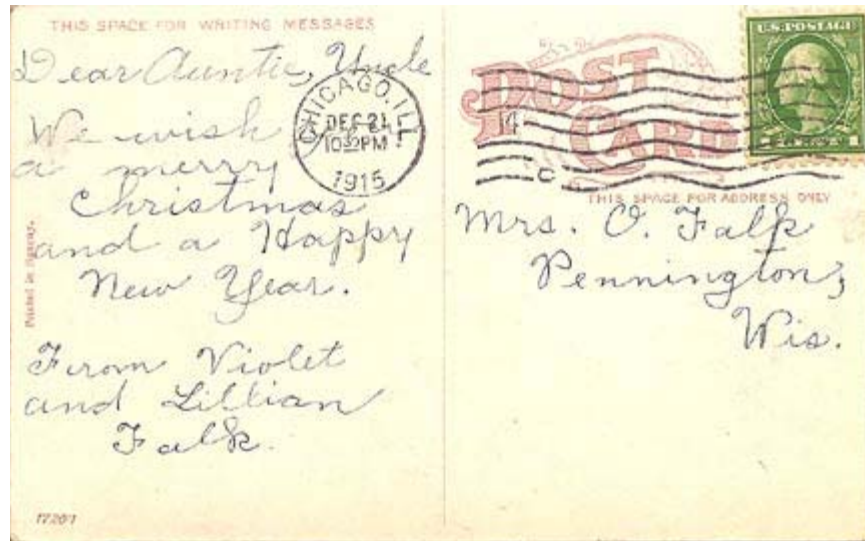 THIS SPACE FOR WRITING MESSAGES
Dear Auntie, Uncle
We wish
a merry
Christmas
and a Happy
New Year.
From Violet
and Lillian
Falk.
Printed in Germany.
CHICAGO, ILL.
DEC 21
10 30 PM
1915
POST
CARD
14
C
U.S. POSTAGE
THIS SPACE FOR ADDRESS ONLY
Mrs. O. Falk
Pennington,
Wis.